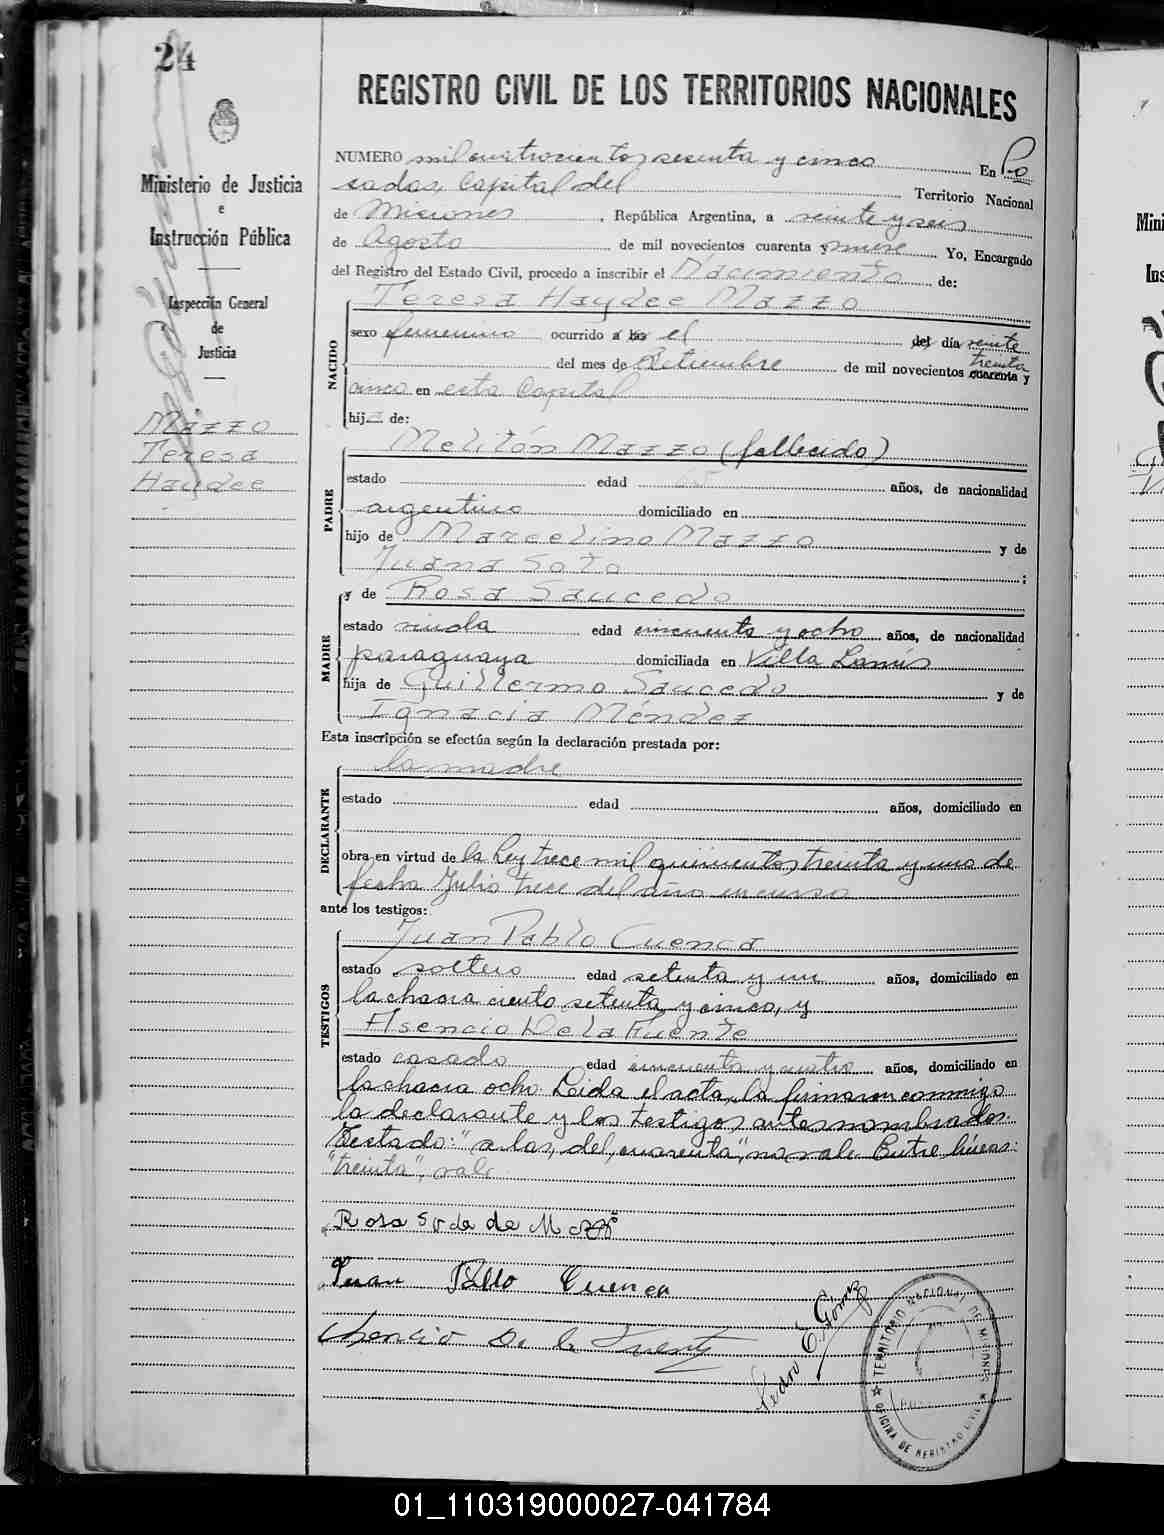 24
Ministerio de Justicia
e
Instrucción Pública
Inspección General
de
Justicia
Mazzo
Teresa
Haydee
REGISTRO CIVIL DE LOS TERRITORIOS NACIONALES
NUMERO mil cuatrocientos sesenta y cinco En Po
sadas, Capital del Territorio Nacional
de Misiones, República Argentina, a veinte y seis
de Agosto de mil novecientos cuarenta y nueve Yo, Encargado
del Registro del Estado Civil, procedo a inscribir el Nacimiento de:
NACIDO
Teresa Haydee Mazzo
sexo femenino ocurrido a las el del día veinte
del mes de Setiembre de mil novecientos cuarenta treinta y
cinco en esta Capital
hija de:
PADRE
Melitón Mazzo (fallecido)
estado edad años, de nacionalidad
argentino domiciliado en
hijo de Marcelino Mazzo y de
Juana Soto :
MADRE
y de Rosa Saucedo
estado viuda edad cincuenta y ocho años, de nacionalidad
paraguaya domiciliada en Villa Lanús
hija de Guillermo Saucedo y de
Ignacia Méndez
Esta inscripción se efectúa según la declaración prestada por:
DECLARANTE
la madre
estado edad años, domiciliado en
obra en virtud de la Ley trece mil quinientos treinta y uno de
fecha Julio trece del año en curso
ante los testigos:
TESTIGOS
Juan Pablo Cuenca
estado soltero edad setenta y un años, domiciliado en
la chacra ciento setenta y cinco, y
Asencio De la Fuente
estado casado edad cincuenta y cuatro años, domiciliado en
la chacra ocho. Leida el acta, la firmaron conmigo
la declarante y los testigos antes nombrados.
Testado: "a las, del, cuarenta", no vale. Entre líneas:
"treinta", vale
Rosa de
Juan Pablo Cuenca
Asencio De la Fuente
Pedro E. Gómez
TERRITORIO NACIONAL DE MISIONES
OFICINA DE REGISTRO CIVIL
Mini
Ins
01_110319000027-041784